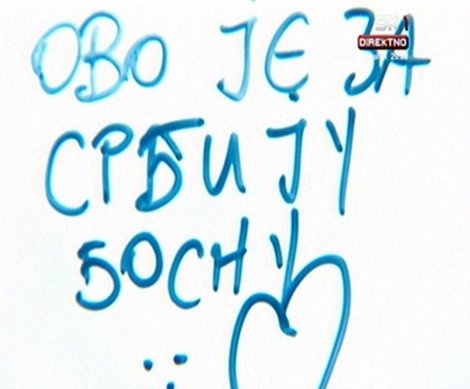 ОВО ЈЕ ЗА
DIREKTNO
СРБИЈУ
БОСНУ